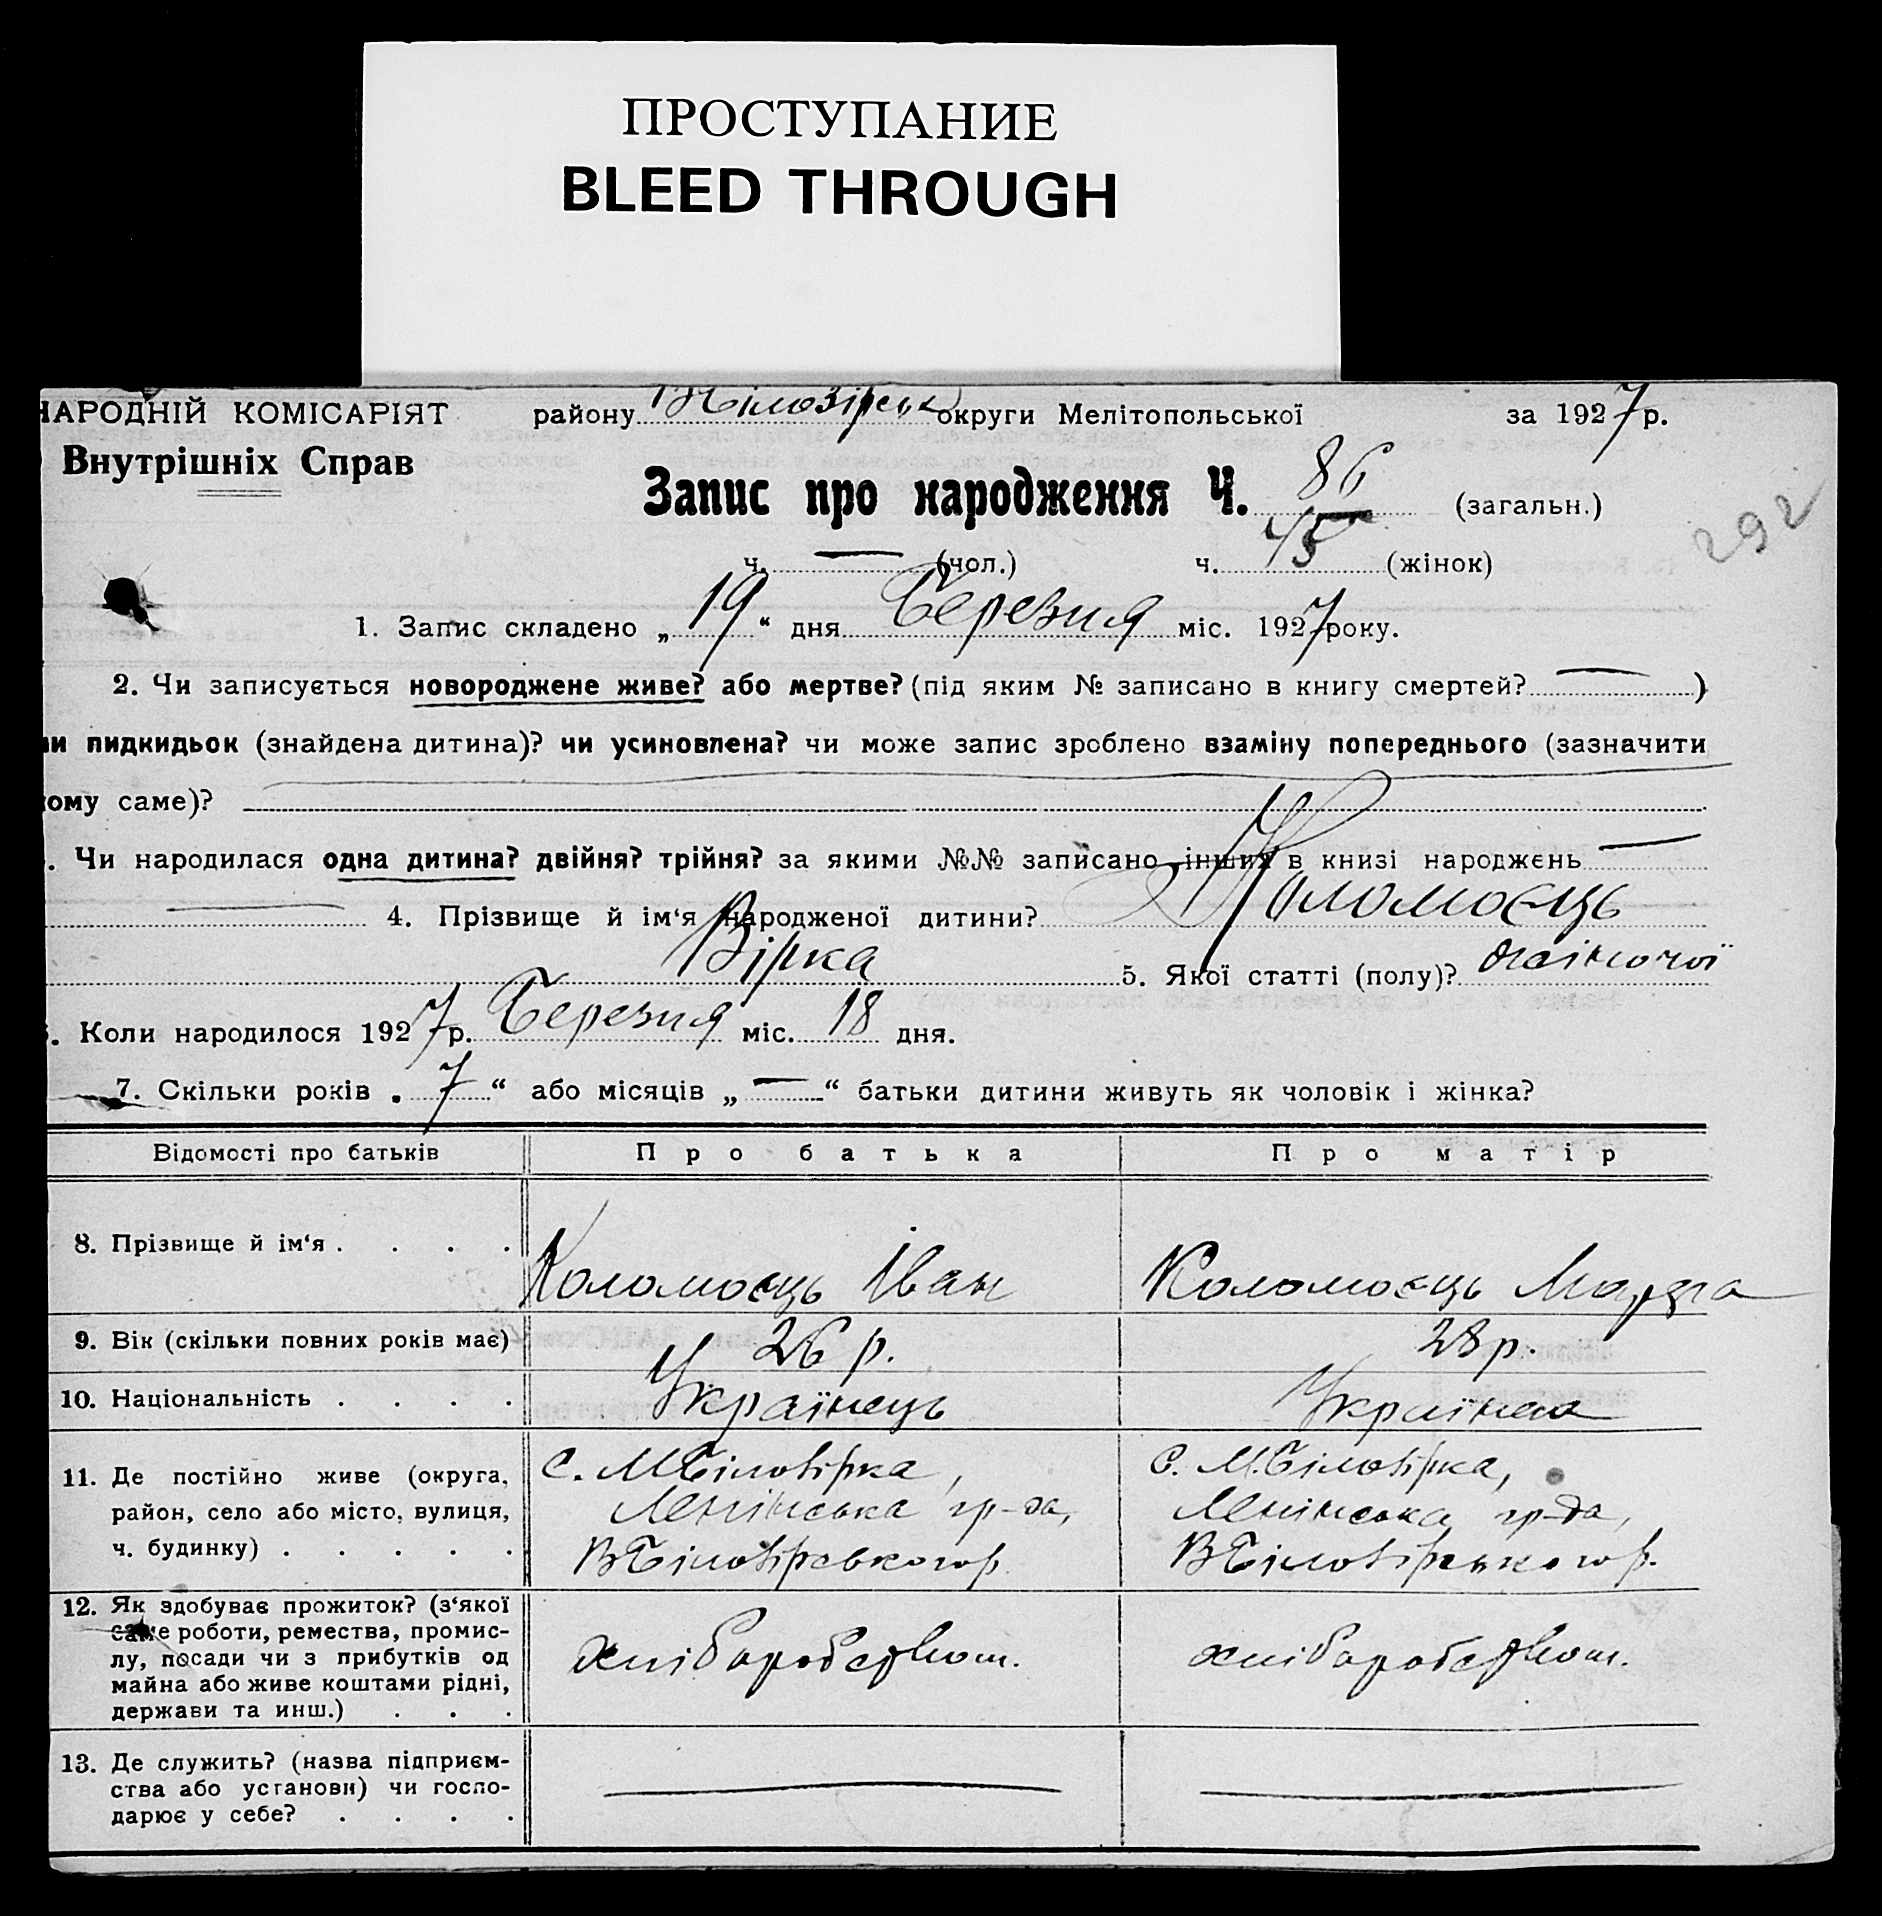 ПРОСТУПАНИЕ
BLEED THROUGH
НАРОДНІЙ КОМІСАРІЯТ району Білозірськ округи Мелітопольської за 1927 р.
Внутрішніх Справ
Запис про народження Ч. 86 (загальн.)
292
ч. — (чол.) ч. 45 (жінок)
1. Запис складено „19“ дня Березня міс. 1927 року.
2. Чи записується новороджене живе? або мертве? (під яким № записано в книгу смертей? — )
чи пидкидьок (знайдена дитина)? чи усиновлена? чи може запис зроблено взаміну попереднього (зазначити
кому саме)?
3. Чи народилася одна дитина? двійня? трійня? за якими №№ записано інших в книзі народжень —
— 4. Прізвище й ім‘я народженої дитини? Коломоєць
Вірка 5. Якої статті (полу)? жіночої
6. Коли народилося 1927 р. Березня міс. 18 дня.
7. Скільки років „7“ або місяців „—“ батьки дитини живуть як чоловік і жінка?
Відомості про батьків Про батька Про матір
8. Прізвище й ім‘я . . . . Коломоєць Іван Коломоєць
9. Вік (скільки повних років має) 26 р. 28 р.
10. Національність . . . . Українець Українка
11. Де постійно живе (округа, С. М Білозірка, С. М. Білозірка,
район, село або місто, вулиця, Ленінська гр-да, Ленінська гр-да,
ч. будинку) . . . . . В Білозірського р. В Білозірського р.
12. Як здобуває прожиток? (з‘якої
саме роботи, ремества, промис-
лу, посади чи з прибутків од хліборобством. хліборобством.
майна або живе коштами рідні,
держави та инш.) . . .
13. Де служить? (назва підприєм-
ства або установи) чи госпо- — —
дарює у себе? . . . .